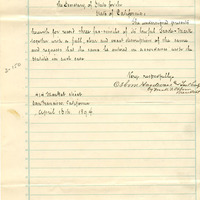 The Secretary of State for the
State of California.
The undersigned presents
herewith for record three fac-similes of its lawful Trade-Mark
together with a full, clear and exact description of the same
and requests that the same be entered in accordance with the
Statute in such case
Very respectfully
Osborn Hardware &
414 Market Street
San Francisco California
April 18th 1894